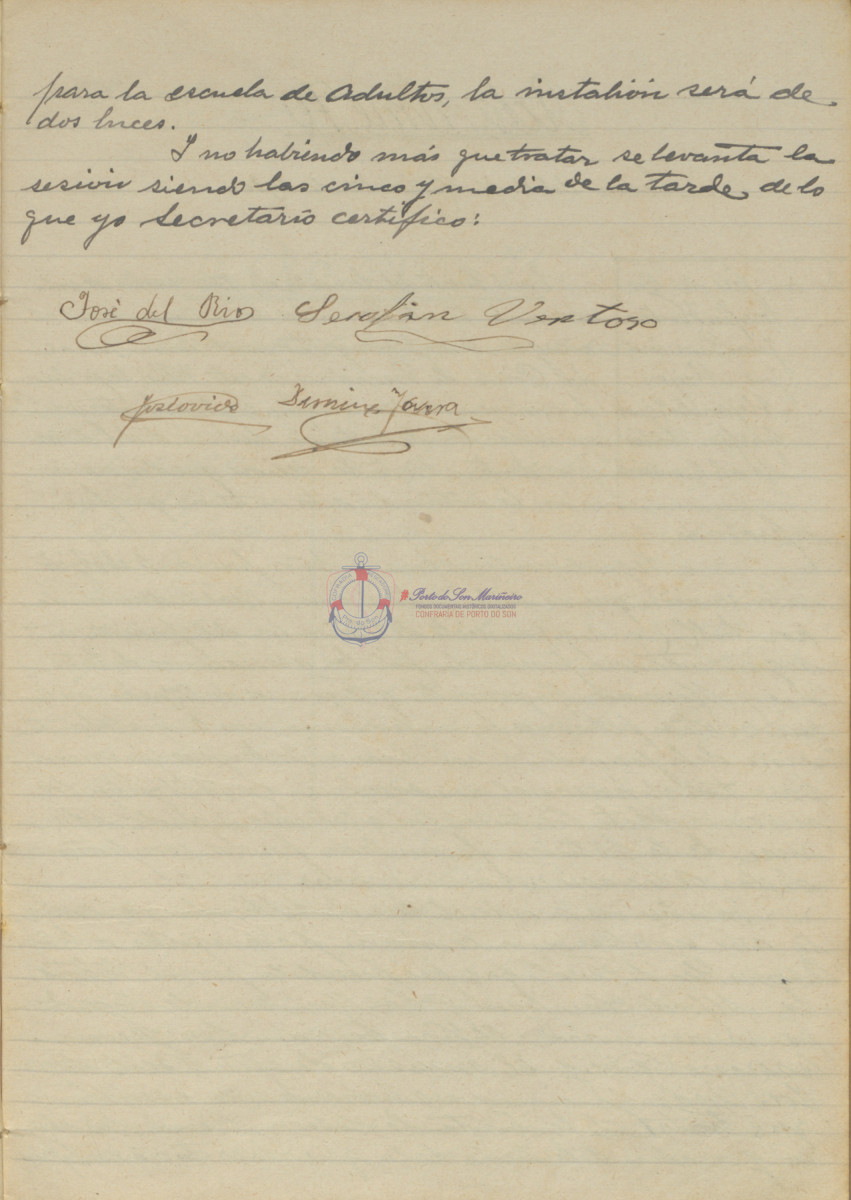 para la escuela de adultos, la instalión será de
dos luces.
I no habiendo más que tratar se levanta la
sesión siendo las cinco y media de la tarde, de lo
que yo Secretario certifico:
José del Rio Serafín Ventoso
Porto do Son Mariñeiro
FONDOS DOCUMENTAIS HISTÓRICOS DIXITALIZADOS
CONFRARÍA DE PORTO DO SON